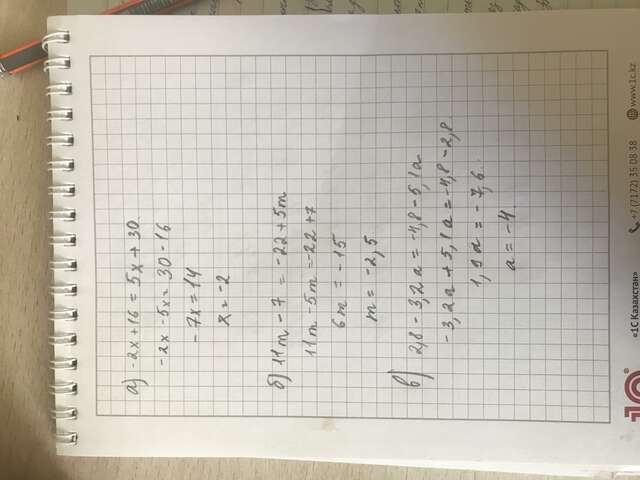 а) -2x + 16 = 5x + 30
-2x - 5x = 30 - 16
-7x = 14
x = -2
б) 11m - 7 = -22 + 5m
11m - 5m = -22 + 7
6m = -15
m = -2,5
в) 2,8 - 3,2a = -4,8 - 5,1a
-3,2a + 5,1a = -4,8 - 2,8
1,9a = -7,6
a = -4
«1С Казахстан»
+7 (7172) 35 08 38
www.1c.kz